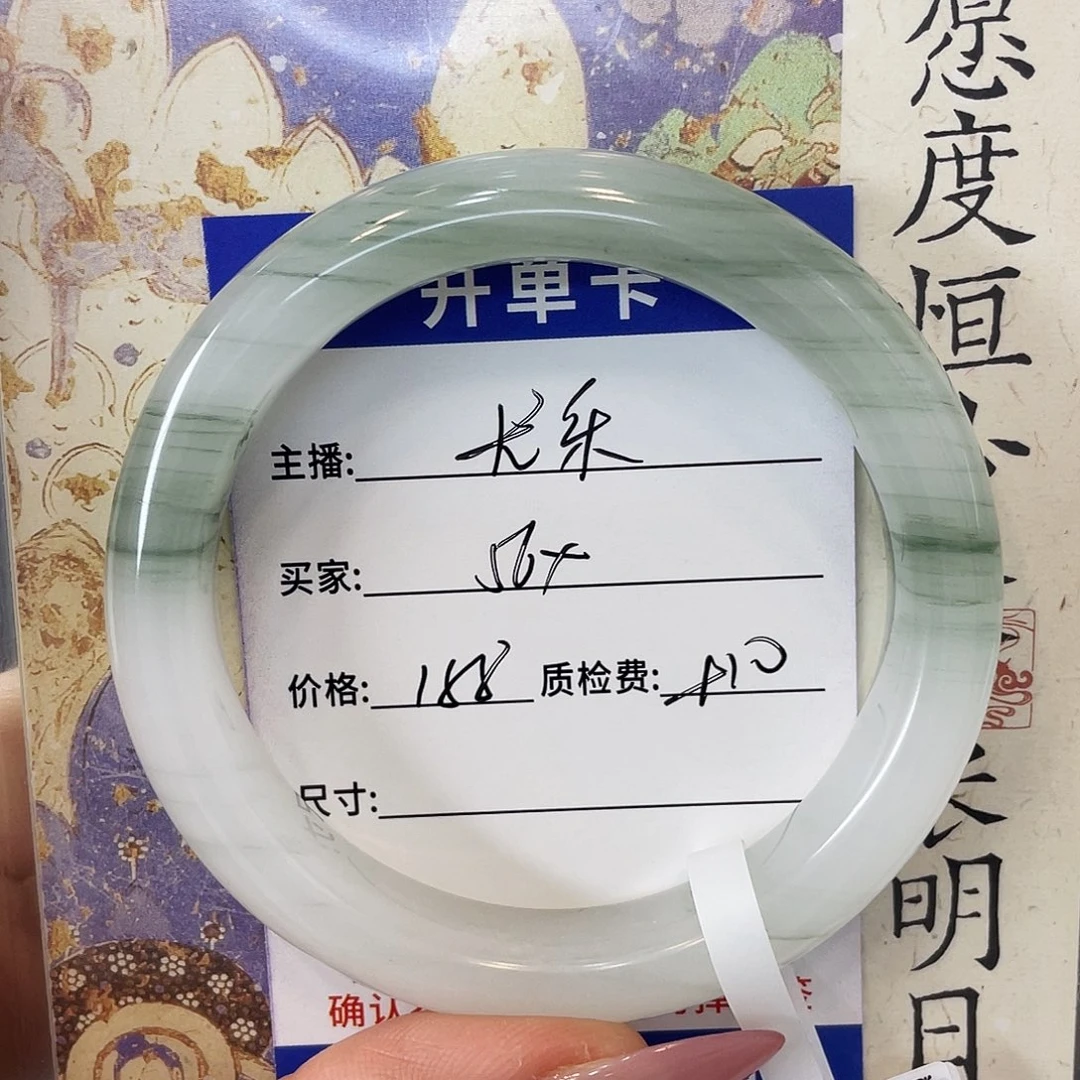 开单卡
主播: 长乐
买家:
价格: 188 质检费: +10
尺寸:
确认
愿度恒
长明
日